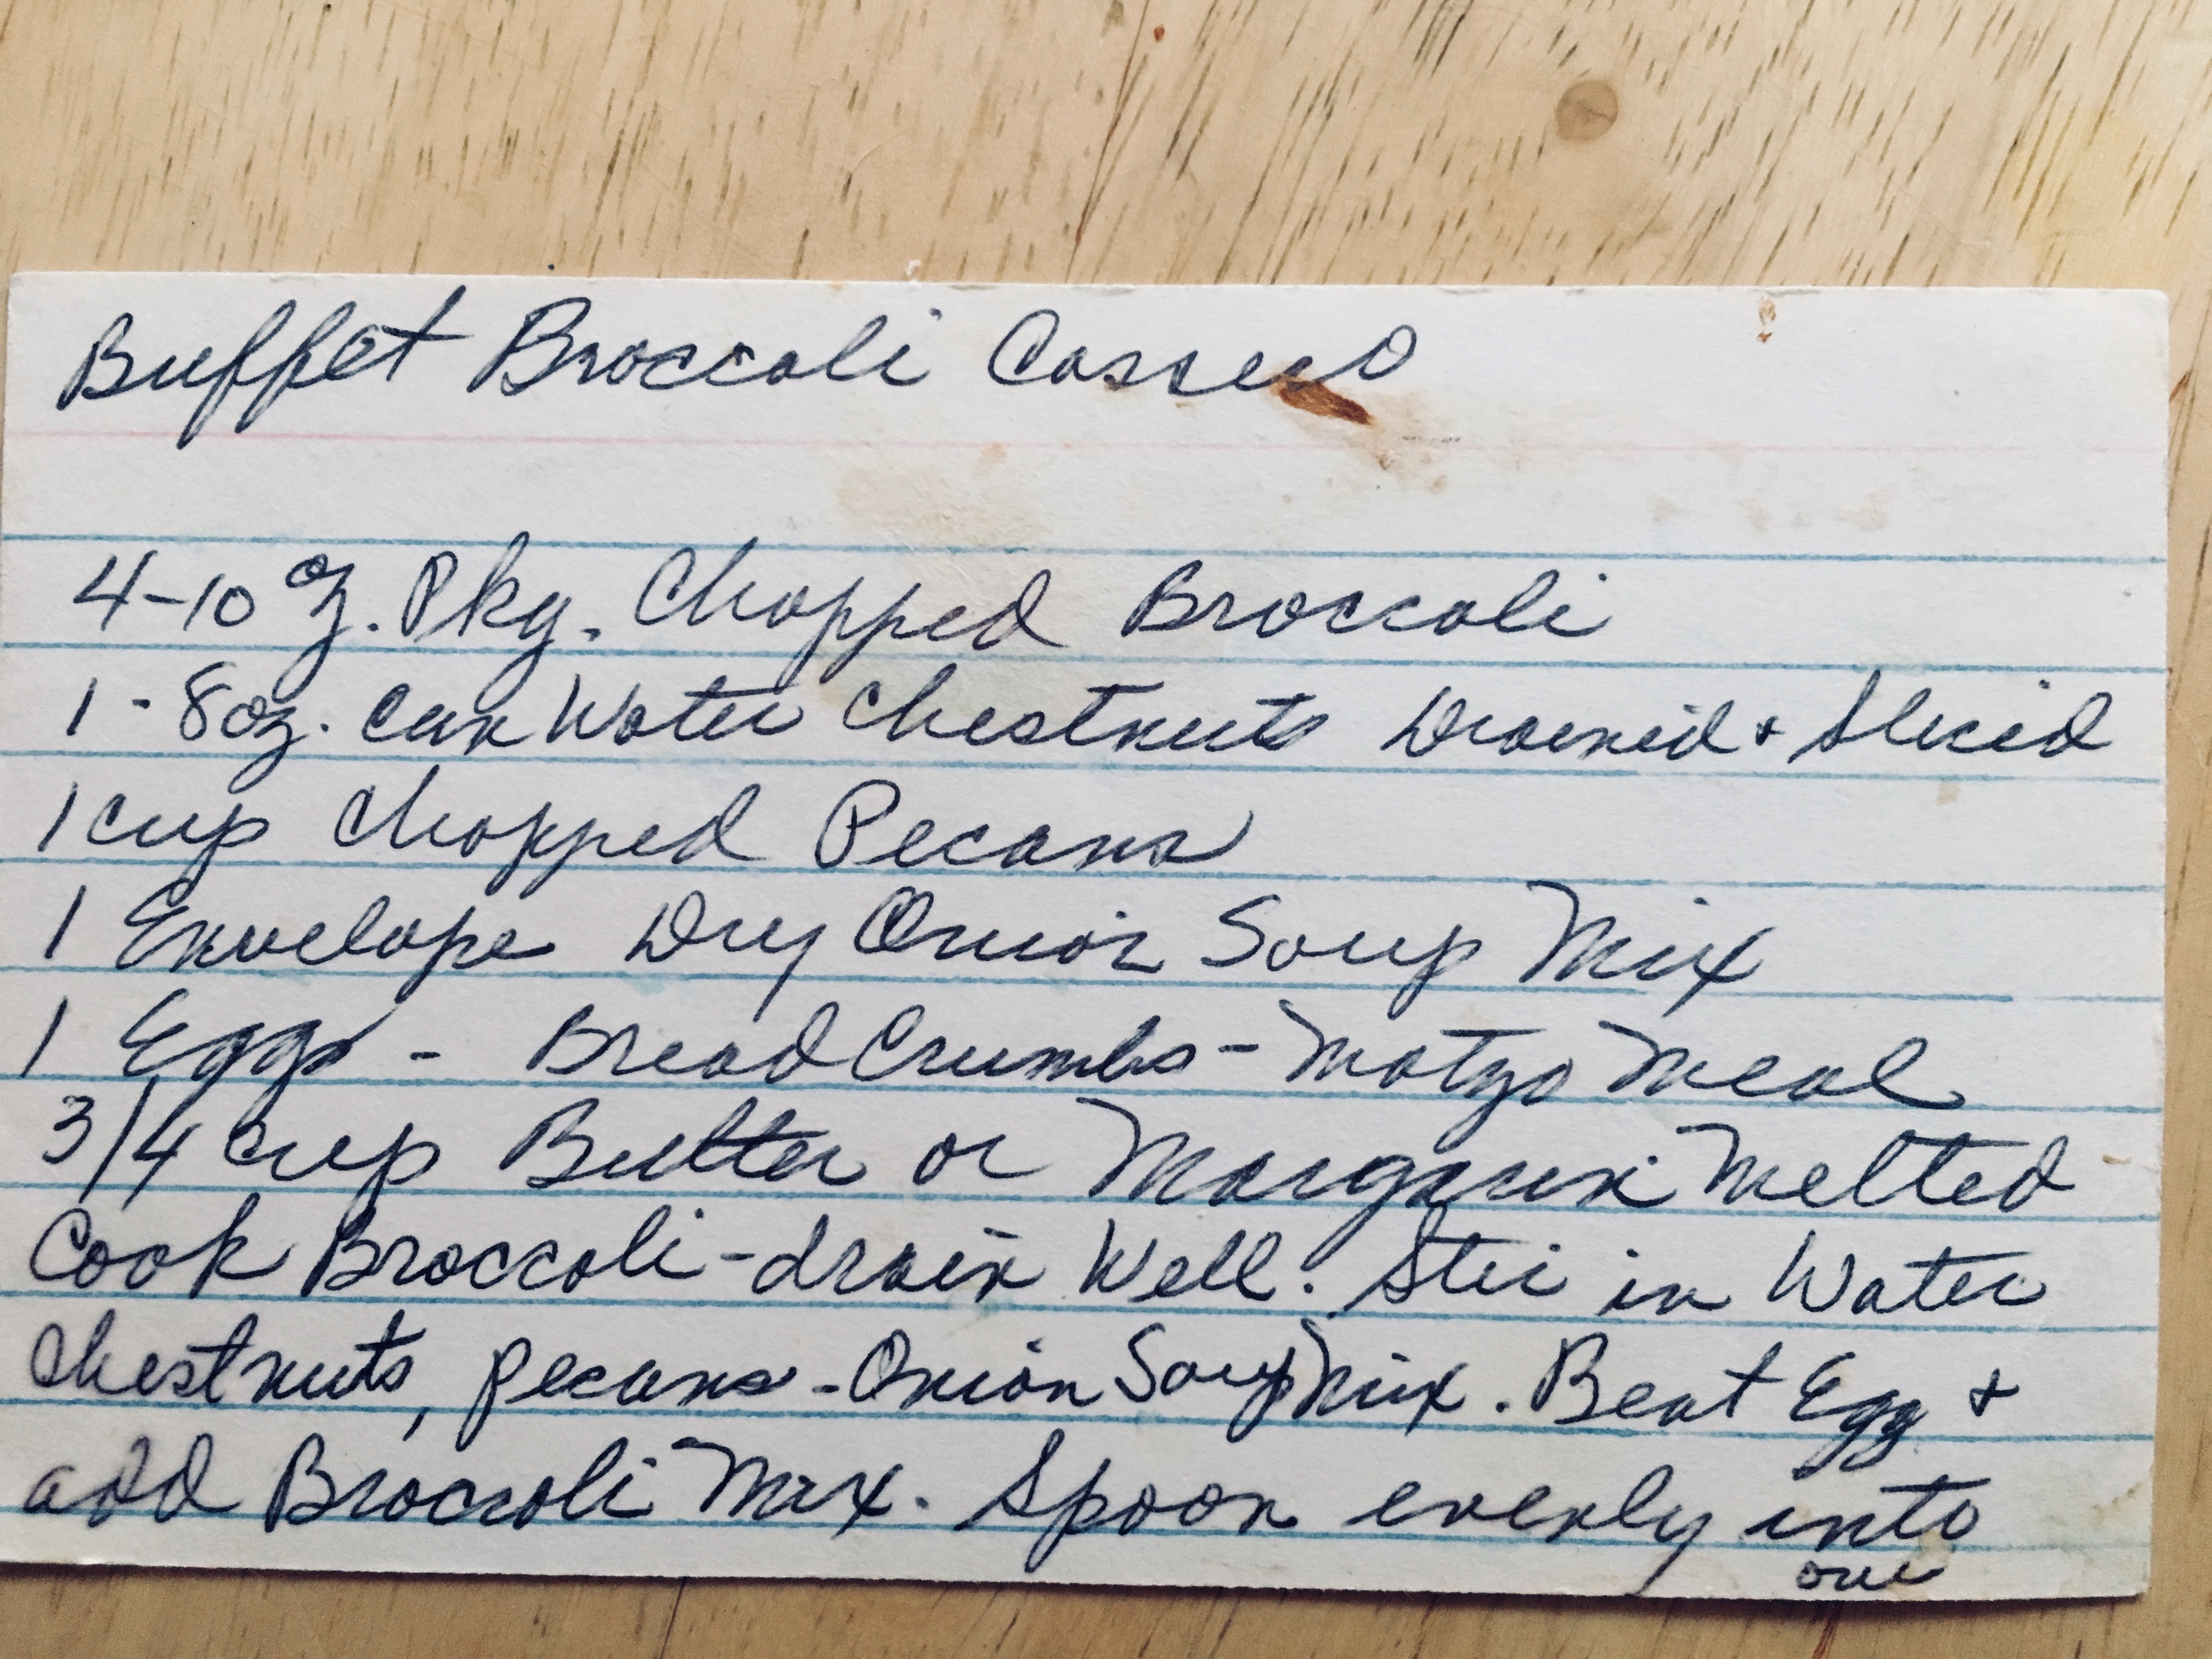 Buffet Broccoli Cassero
4-10 oz. Pkg. Chopped Broccoli
1 - 8 oz. can Water Chestnuts Drained + Sliced
1 cup Chopped Pecans
1 Envelope Dry Onion Soup Mix
1 Egg - Bread Crumbs - Matzo Meal
3/4 cup Butter or Margarine Melted
Cook Broccoli - drain Well. Stir in Water
Chestnuts, pecans - Onion Soup Mix. Beat Egg +
add Broccoli Mix. Spoon evenly into
over